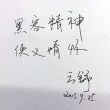 黑客精神
侠义情怀
云舒
2015.9.25